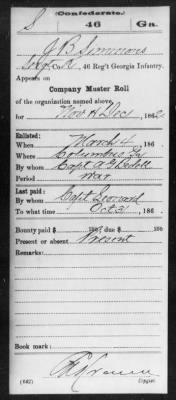 S Confederate.
46 Ga.
J. B. Simmons
Co. 46 Reg't Georgia Infantry.
Appears on
Company Muster Roll
of the organization named above,
for Nov & Dec, 1862.
Enlisted:
When March 4, 186
Where Columbus Ga
By whom Capt A. Bedell
Period War
Last paid:
By whom Capt Leonard
To what time Oct 31, 186
Bounty paid $ 100; due $ 100
Present or absent Present
Remarks:
Book mark:
(642) Copyist.